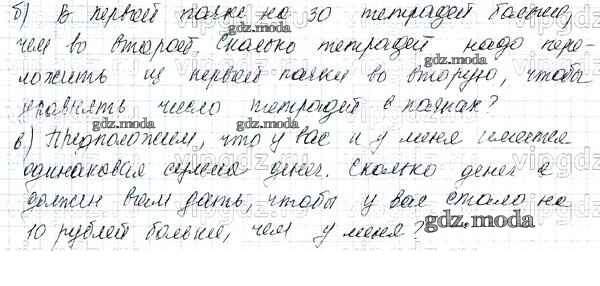 б) В первой пачке на 30 тетрадей больше,
чем во второй. Сколько тетрадей надо пере-
ложить из первой пачки во вторую, чтобы
уровнять число тетрадей в пачках?
в) Предположим, что у вас и у меня имеется
одинаковая сумма денег. Сколько денег я
должен вам дать, чтобы у вас стало на
10 рублей больше, чем у меня?
gdz.moda
gdz.moda
gdz.moda
gdz.moda
gdz.moda
gdz.moda
gdz.moda